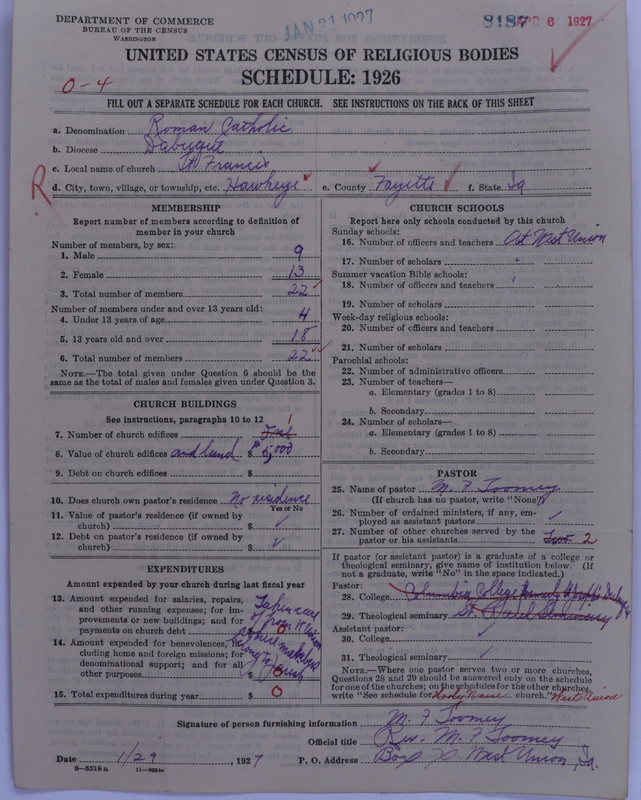 DEPARTMENT OF COMMERCE
BUREAU OF THE CENSUS
WASHINGTON
JAN 31 1927
8187
APR 6 1927
UNITED STATES CENSUS OF RELIGIOUS BODIES
SCHEDULE: 1926
0-4
FILL OUT A SEPARATE SCHEDULE FOR EACH CHURCH. SEE INSTRUCTIONS ON THE BACK OF THIS SHEET
a. Denomination Roman Catholic
b. Diocese Dubuque
c. Local name of church St Francis
R
d. City, town, village, or township, etc. Hawkeye e. County Fayette f. State Ia
MEMBERSHIP
Report number of members according to definition of
member in your church
Number of members, by sex:
1. Male 9
2. Female 13
3. Total number of members 22
Number of members under and over 13 years old:
4. Under 13 years of age 4
5. 13 years old and over 18
6. Total number of members 22
NOTE.—The total given under Question 6 should be
same as the total of males and females given under Question 3.
CHURCH BUILDINGS
See instructions, paragraphs 10 to 12
7. Number of church edifices 1
8. Value of church edifices and land $ 5,000
9. Debt on church edifices $
10. Does church own pastor's residence No residence
Yes or No
11. Value of pastor's residence (if owned by
church) $
12. Debt on pastor's residence (if owned by
church) $
EXPENDITURES
Amount expended by your church during last fiscal year
13. Amount expended for salaries, repairs,
and other running expenses; for im-
provements or new buildings; and for
payments on church debt $ 0
Taken care
of from W Union
14. Amount expended for benevolences, in-
cluding home and foreign missions; for
denominational support; and for all
other purposes $ 0
15. Total expenditures during year $ 0
CHURCH SCHOOLS
Report here only schools conducted by this church
Sunday schools:
16. Number of officers and teachers At West Union
17. Number of scholars
Summer vacation Bible schools:
18. Number of officers and teachers
19. Number of scholars
Week-day religious schools:
20. Number of officers and teachers
21. Number of scholars
Parochial schools:
22. Number of administrative officers
23. Number of teachers—
a. Elementary (grades 1 to 8)
b. Secondary
24. Number of scholars—
a. Elementary (grades 1 to 8)
b. Secondary
PASTOR
25. Name of pastor M. F Toomey
(If church has no pastor, write "None")
26. Number of ordained ministers, if any, em-
ployed as assistant pastors
27. Number of other churches served by the
pastor or his assistants 2
If pastor (or assistant pastor) is a graduate of a college or
theological seminary, give name of institution below. (If
not a graduate, write "No" in the space indicated.)
Pastor:
28. College Columbia College
29. Theological seminary St. Paul Seminary
Assistant pastor:
30. College
31. Theological seminary
NOTE.—Where one pastor serves two or more churches,
Questions 28 and 29 should be answered only on the schedule
for one of the churches; on the schedules for the other churches,
write "See schedule for Holy Name church." West Union
Signature of person furnishing information M. F Toomey
Official title Rev. M. F Toomey
Date 1/29, 1927 P. O. Address Box X West Union, Ia.
8-5518 a